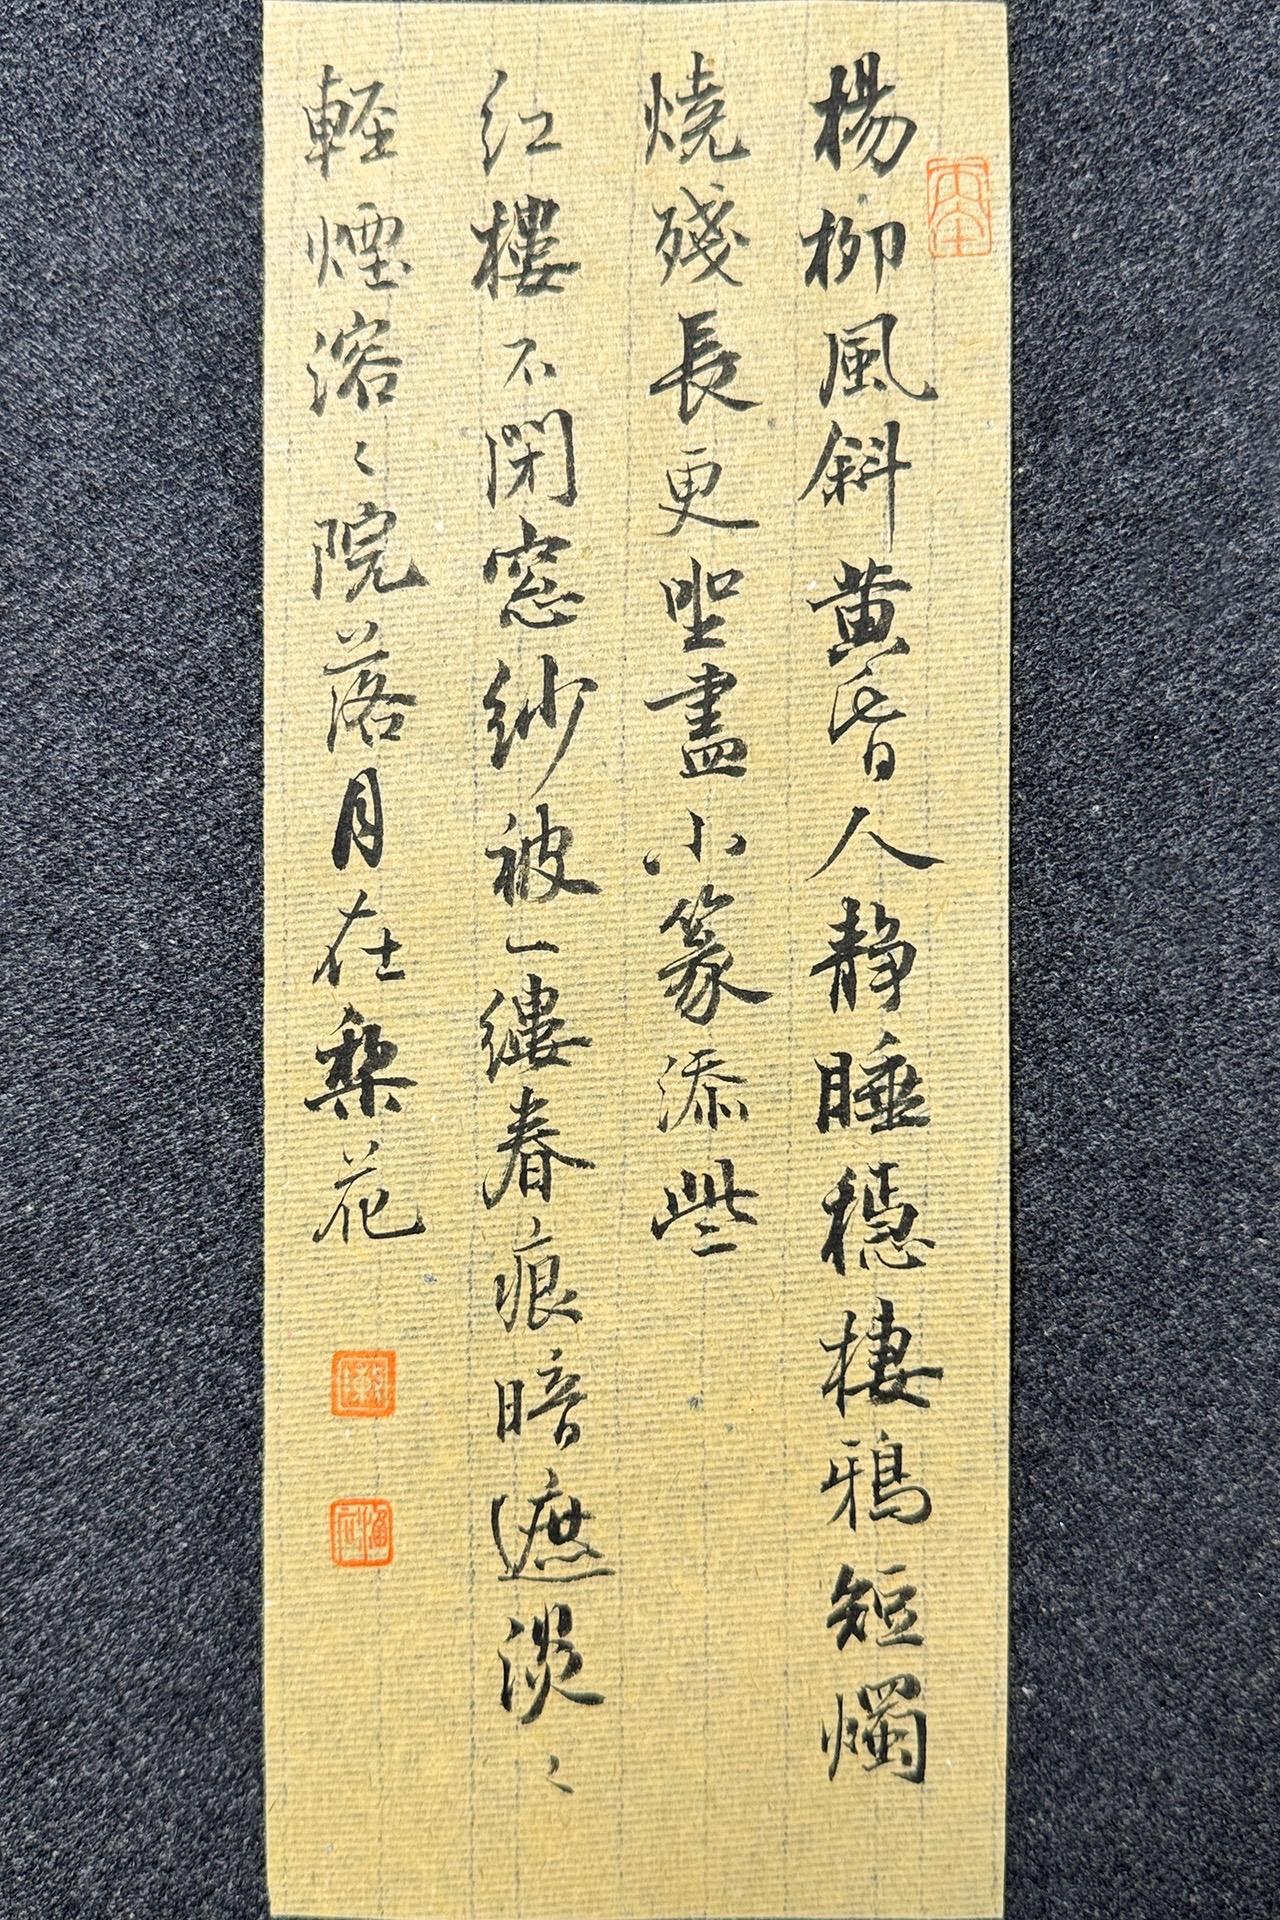 楊柳風斜黄昏人靜睡穩棲鴉短燭
燒殘長更坐盡小篆添些
红樓不閉窓紗被一縷春痕暗遮淡〻
軽煙溶〻院落月在梨花